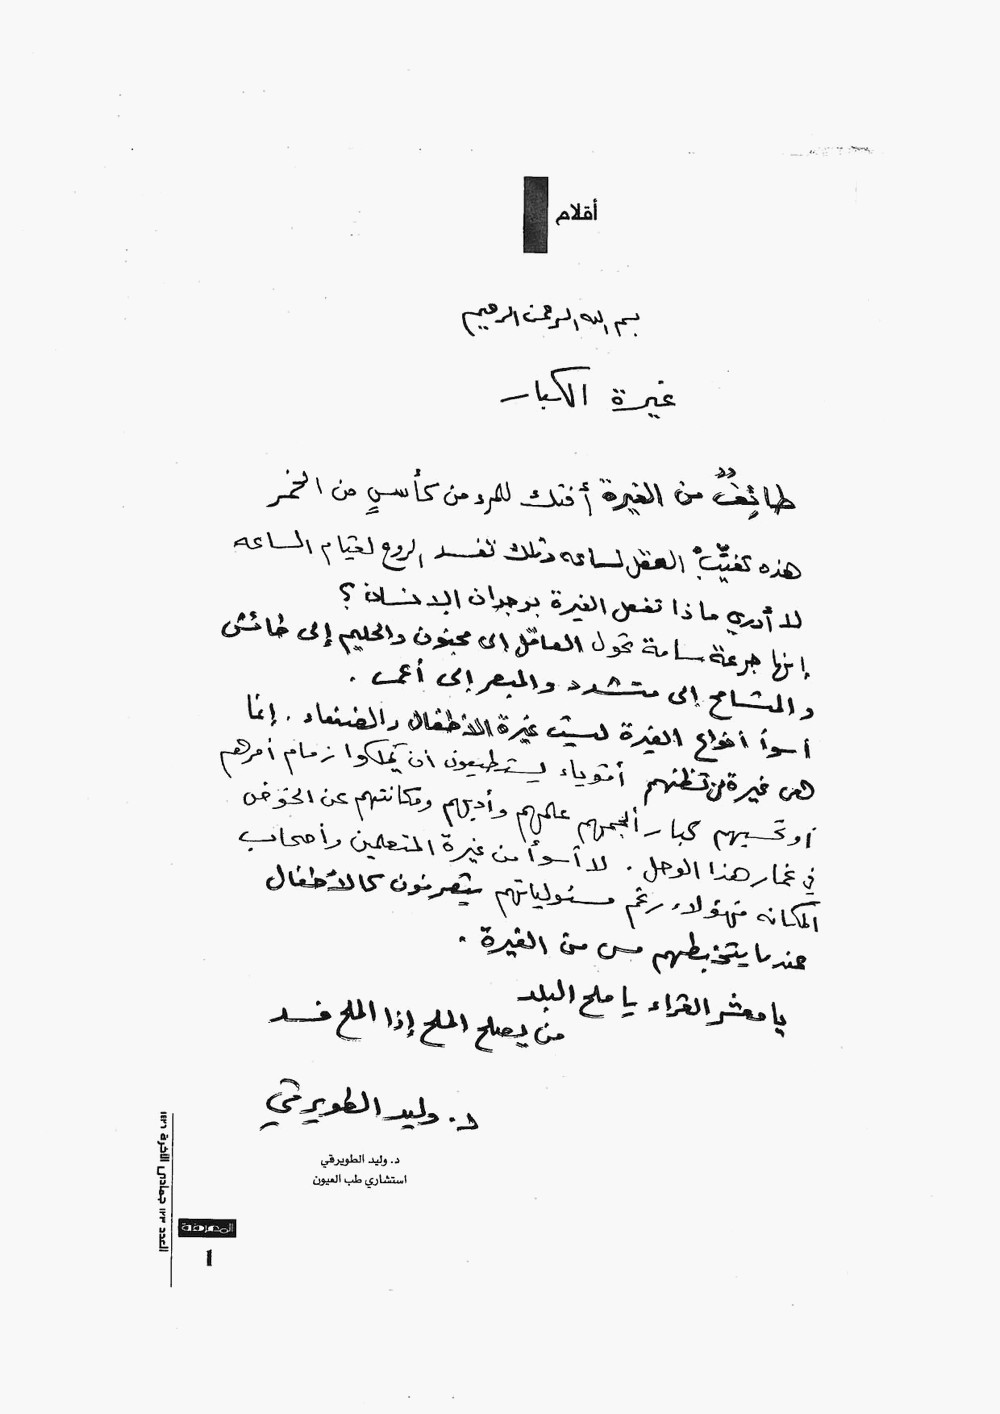 أقلام
بسم الله الرحمن الرحيم
غيرة الكبار
طائِفٌ من الغيرة أفتك للمرء من كأسٍ من الخمر
هذه تغيّبُ العقل لساعه وتلك تفسد الروح لقيام الساعه
لا أدري ماذا تفعل الغيرة بوجدان الإنسان ؟
إنها جرعة سامة تحول العاقل إلى مجنون والحليم إلى طائش
والمتسامح إلى متشدد والمبصر إلى أعمى .
أسوأ أنواع الغيرة ليست غيرة الأطفال والضعفاء . إنما
هي غيرة من تظنهم أقوياء يستطيعون أن يملكوا زمام أمرهم
أو تحسبهم كبار ألجمهم علمهم وأدبهم ومكانتهم عن الخوض
في غمار هذا الوحل . لا أسوأ من غيرة المتعلمين وأصحاب
المكانه فهؤلاء رغم مسئولياتهم يتصرفون كالأطفال
عندما يتخبطهم مس من الغيرة .
يا معشر القراء يا ملح البلد
من يصلح الملح إذا الملح فسد
د. وليد الطويرقي
د. وليد الطويرقي
استشاري طب العيون
العدد ١٢٣ جمادى الآخرة ١٤٢٦
المعرفة
١